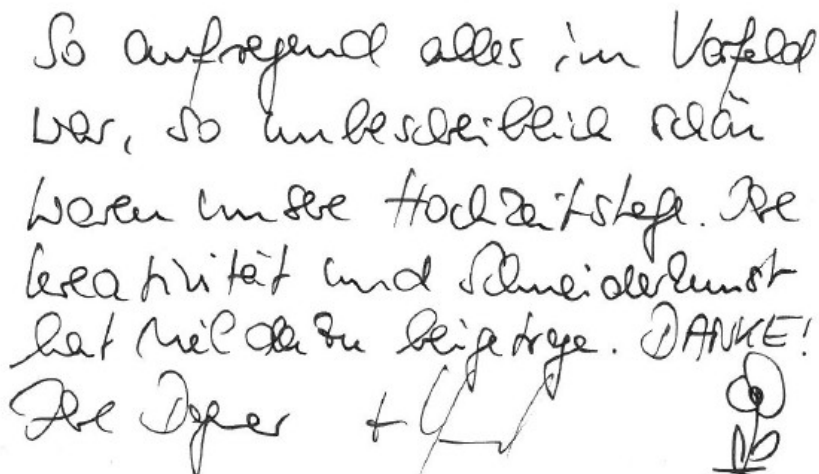 So aufregend alles im Vorfeld
war, so unbeschreiblich schön
waren unsere Hochzeitstage. Ihre
Kreativität und Schneiderkunst
hat viel dazu beigetrage. DANKE!
Ihre +